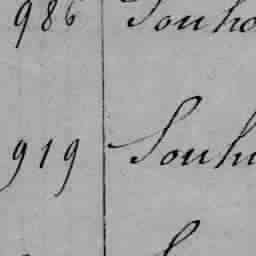 986 Souho
919 Souhu